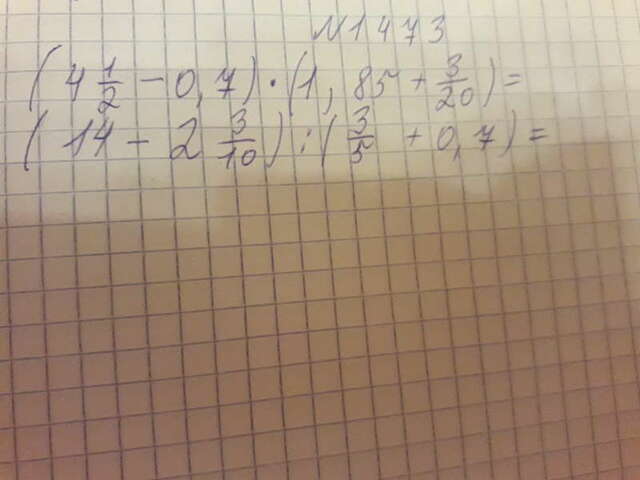 N1443
(4 1/2 - 0,4) · (1,85 + 3/20) =
(14 - 2 3/10) : (3/5 + 0,7) =